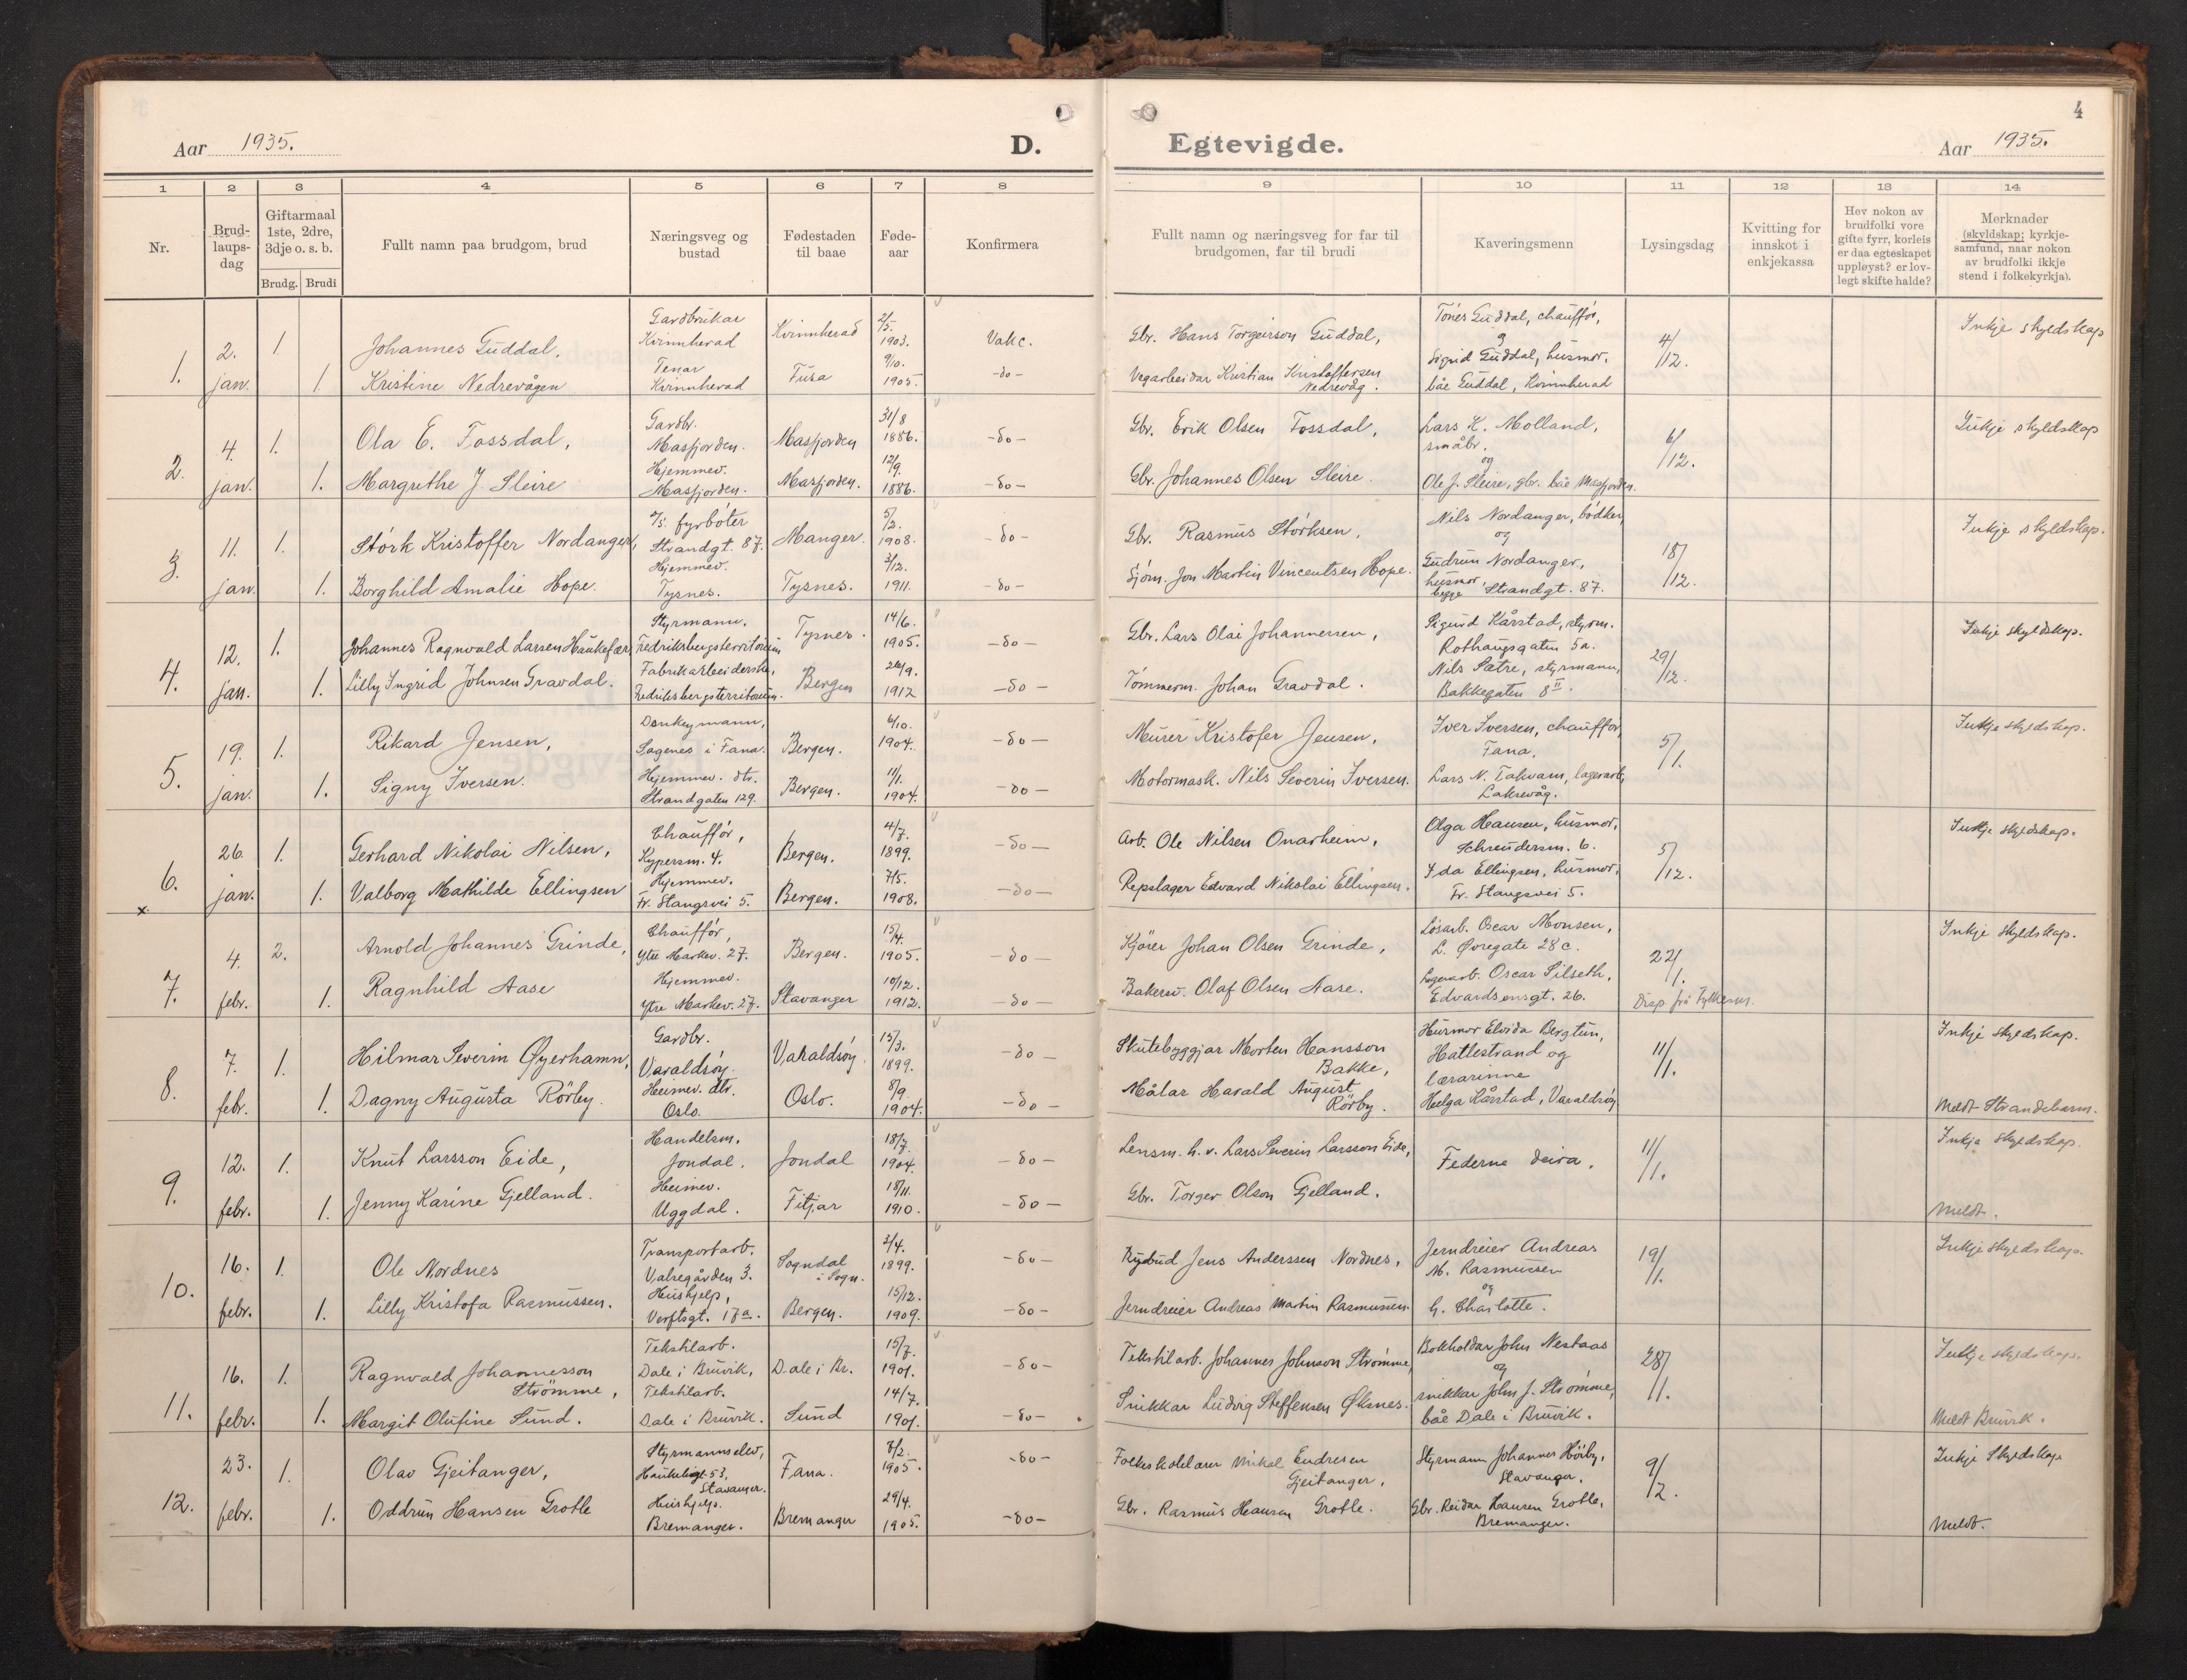 4
Aar 1935.
D.
Egtevigde.
Aar 1935.
1 2 3 4 5 6 7 8 9 10 11 12 13 14
Nr.
Brud-
laups-
dag
Giftarmaal
1ste, 2dre,
3dje o. s. b.
Brudg. Brudi
Fullt namn paa brudgom, brud
Næringsveg og
bustad
Fødestaden
til baae
Føde-
aar
Konfirmera
Fullt namn og næringsveg for far til
brudgomen, far til brudi
Kaveringsmenn
Lysingsdag
Kvitting for
innskot i
enkjekassa
Hev nokon av
brudfolki vore
gifte fyrr, korleis
er daa egteskapet
uppløyst? er lov-
legt skifte halde?
Merknader
(skyldskap; kyrkje-
samfund, naar nokon
av brudfolki ikkje
stend i folkekyrkja).
1.
2.
jan.
1.
Johannes Guddal,
Gardbrukar
Kvinnherad
Kvinnherad
2/5.
1903.
Vakc.
Gbr. Hans Torgeirson Guddal,
1.
Kristine Nedrevågen
Tenar
Kvinnherad
Fusa
9/10.
1905.
-do-
Vegarbeidar Kristian Kristoffersen
Nedrevåg.
Tönes Guddal, chaufför,
og
Sigrid Guddal, husmor.
båe Guddal, Kvinnherad
4/12.
Inkje skyldskap
2.
4.
jan.
1.
Ola E. Fossdal,
Gardbr.
Masfjorden.
Masfjorden
31/8
1886.
-do-
Gbr. Erik Olsen Fossdal,
1.
Margrethe J. Sleire
Hjemmev.
Masfjorden.
Masfjorden.
12/9.
1886.
-do-
Gbr. Johannes Olsen Sleire.
Lars K. Molland,
småbr.
og
Ole J. Sleire, gbr. båe Masfjorden.
6/12.
Inkje skyldskap
3.
11.
jan.
1.
Störk Kristoffer Nordanger,
fyrböter
Strandgt. 87.
Manger.
5/2.
1908.
-do-
Gbr. Rasmus Störksen,
1.
Borghild Amalie Hope.
Hjemmev.
Tysnes.
Tysnes.
3/12.
1911.
-do-
Sjöm. Jon Martin Vincentsen Hope.
Nils Nordanger, bödker,
og
Gudrun Nordanger,
husmor,
begge Strandgt. 87.
18/12.
Inkje skyldskap.
4.
12.
jan.
1.
Johannes Ragnvald Larsen Haukefær,
Styrmann.
Fredriksbergsterritorium
Tysnes.
14/6.
1905.
-do-
Gbr. Lars Olai Johannessen,
1.
Lilly Ingrid Johnsen Gravdal.
Fabrikarbeiderske,
Fredriksbergsterritorium.
Bergen
26/9.
1912
-do-
Tömmerm. Johan Gravdal.
Sigurd Kårstad, styrm.
Rothaugsgaten 5a.
Nils Sætre, styrmann,
Bakkegaten 8 II.
29/12.
Inkje skyldskap.
5.
19.
jan.
1.
Rikard Jensen,
Donkeymann,
Søgenes i Fana.
Bergen.
6/10.
1904.
-do-
Murer Kristofer Jensen,
1.
Signy Iversen.
Hjemmev. dtr.
Strandgaten 129.
Bergen.
11/1.
1904.
-do-
Motormask. Nils Severin Iversen.
Iver Iversen, chauffør,
Fana.
Lars N. Takvam, lagerarb.,
Laksevåg.
5/1.
Inkje skyldskap.
6.
x
26.
jan.
1.
Gerhard Nikolai Nilsen,
Chauffør,
Kypersm. 4.
Bergen.
4/7.
1899.
-do-
Arb. Ole Nilsen Onarheim,
1.
Valborg Mathilde Ellingsen
Hjemmev.
Fr. Stangsvei 5.
Bergen.
7/5.
1908.
-do-
Repslager Edvard Nikolai Ellingsen.
Olga Hansen, husmor,
Schreudersm. 6.
Ida Ellingsen, husmor,
Fr. Stangsvei 5.
5/12.
Inkje skyldskap.
7.
4.
febr.
2.
Arnold Johannes Grinde,
Chauffør,
Ytre Markev. 27.
Bergen.
15/4.
1905.
-do-
Kjörer Johan Olsen Grinde,
1.
Ragnhild Aase
Hjemmev.
Ytre Markev. 27.
Stavanger
10/12.
1912.
-do-
Bakersv. Olaf Olsen Aase.
Løsarb. Oscar Monsen,
L. Øvregate 28c.
Lagerarb. Oscar Silseth,
Edvardsensgt. 26.
22/1.
Disp. frå Fylkesm.
Inkje skyldskap.
8.
7.
febr.
1.
Hilmar Severin Øyerhamn,
Gardbr.
Varaldsøy.
Varaldsøy
15/3.
1899.
-do-
Skutebyggjar Morten Hansson
Bakke,
1.
Dagny Augusta Rörby.
Heimev. dtr.
Oslo.
Oslo.
8/9.
1904.
-do-
Målar Harald August
Rörby.
Husmor Elvida Bergtun,
Hattestrand og
lærarinne
Helga Kårstad, Varaldsøy
11/1.
Inkje skyldskap.
Meldt Strandebarm.
9.
12.
febr.
1.
Knut Larsson Eide,
Handelsm.
Jondal.
Jondal
18/7
1904.
-do-
Lensm. h. v. Lars Severin Larsson Eide,
1.
Jenny Karine Gjelland.
Heimev.
Uggdal.
Fitjar
18/11.
1910.
-do-
Gbr. Torger Olson Gjelland.
Federne deira.
11/1.
Inkje skyldskap.
Meldt.
10.
16.
febr.
1.
Ole Nordnes
Transportarb.
Valregården 3.
Sogndal
i Sogn.
2/4.
1899.
-do-
Bydbud Jens Anderssen Nordnes,
1.
Lilly Kristofa Rasmussen.
Hushjelp,
Verftsgt. 17a.
Bergen.
15/12.
1909.
-do-
Jerndreier Andreas Martin Rasmussen.
Jerndreier Andreas
M. Rasmussen
og
h. Charlotte.
19/1.
Inkje skyldskap.
11.
16.
febr.
1.
Ragnvald Johannesson
Strömme,
Tekstilarb.
Dale i Bruvik.
Dale i Br.
15/7.
1901.
-do-
Tekstilarb. Johannes Johnson Strömme,
1.
Margit Olufine Sund.
Tekstilarb.
Dale i Bruvik.
Sund
14/7.
1901.
-do-
Snikkar Ludvig Steffensen Øksnes.
Bokholdar John Nestaas
og
snikkar John J. Strömme,
båe Dale i Bruvik.
28/11.
Inkje skyldskap.
Meldt Bruvik.
12.
23.
febr.
1.
Olav Gjeitanger,
Styrmannselev,
Haukeligt. 53,
Stavanger.
Fana.
8/2.
1905.
-do-
Folkeskolelærer Mikal Endresen
Gjeitanger,
1.
Oddrun Hansen Grotle
Hushjelp.
Bremanger.
Bremanger
29/4.
1905.
-do-
Gbr. Rasmus Hansen Grotle.
Styrmann Johannes Hörby,
Stavanger.
Gbr. Reidar Hansen Grotle,
Bremanger.
9/2.
Inkje Skyldskap
Meldt.